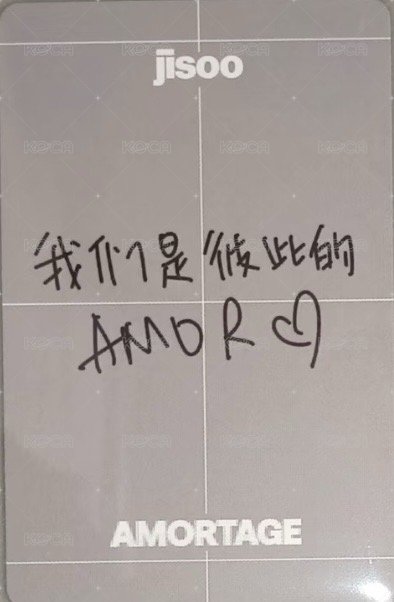 jisoo
我们是彼此的
AMOR♡
AMORTAGE